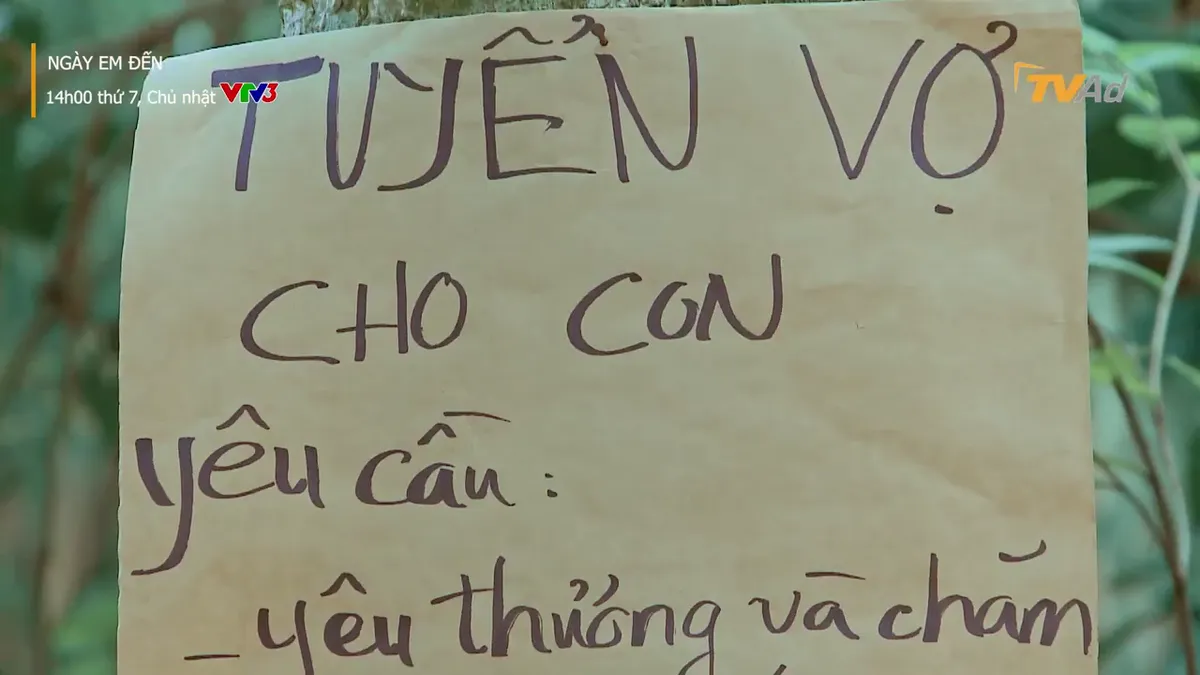 NGÀY EM ĐẾN
14h00 thứ 7, Chủ nhật VTV3
TVAd
TUYỂN VỢ
CHO CON
yêu cầu :
- yêu thương và chăm